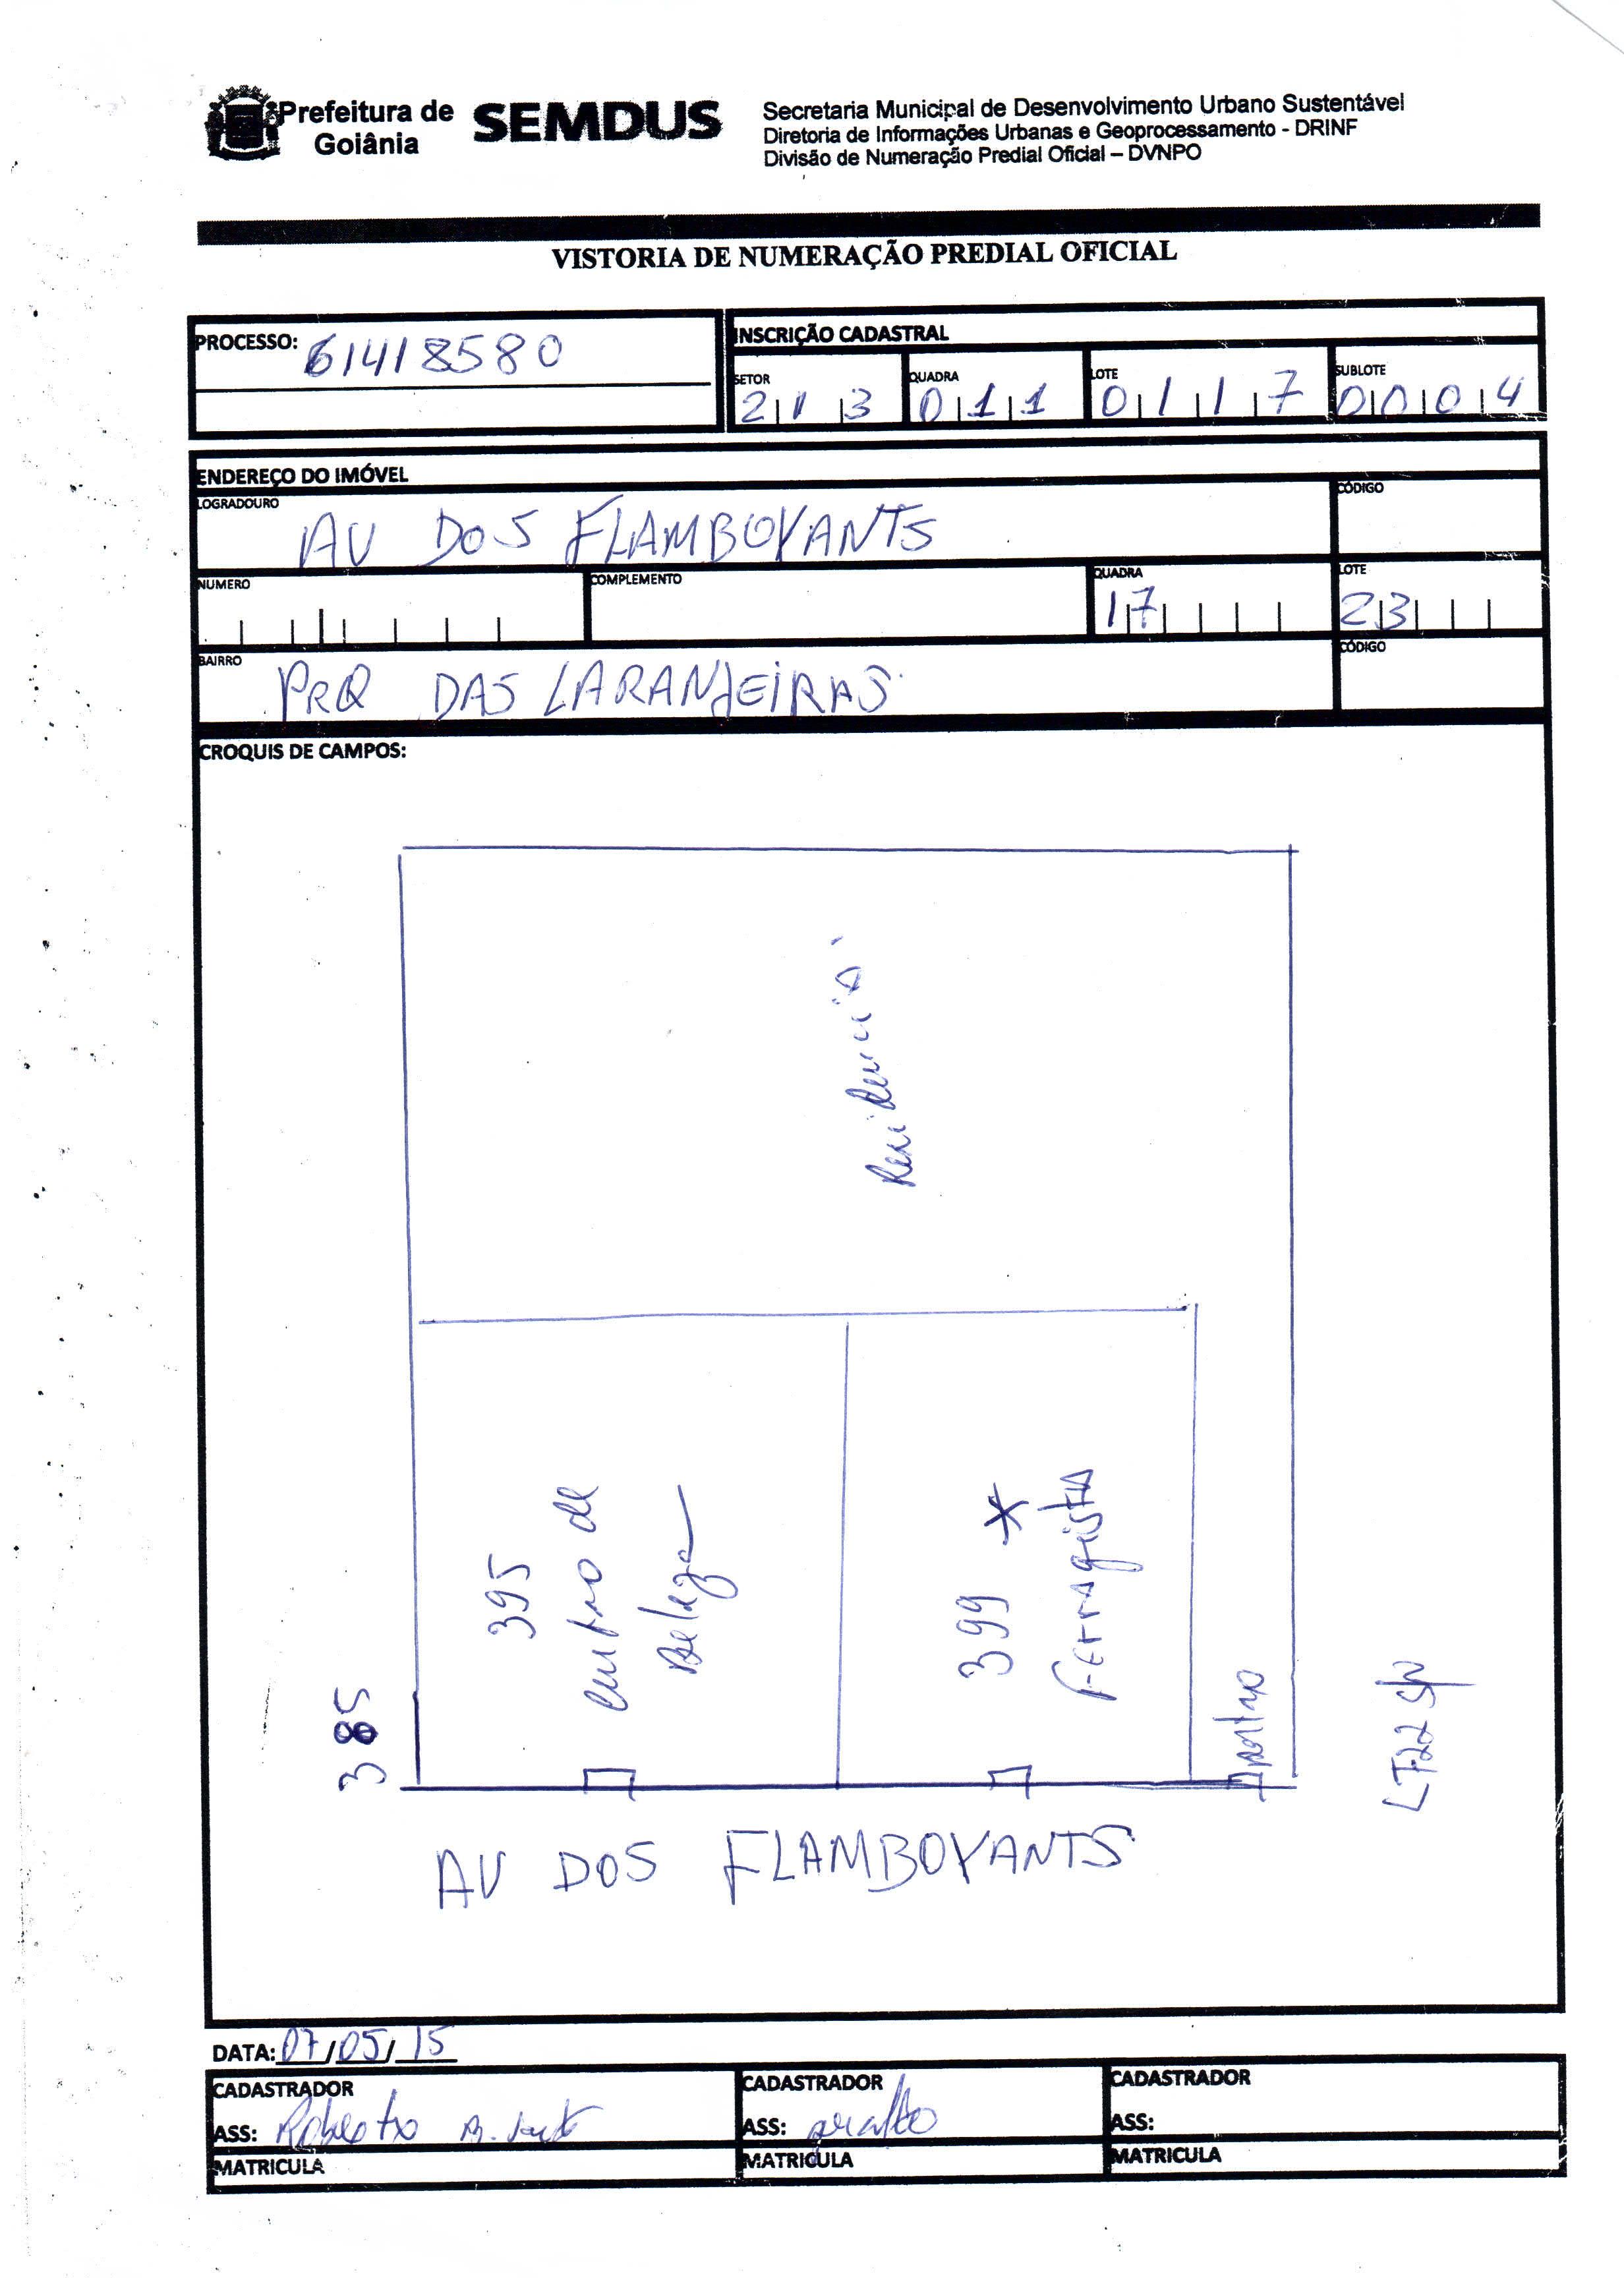 Prefeitura de
Goiânia
SEMDUS
Secretaria Municipal de Desenvolvimento Urbano Sustentável
Diretoria de Informações Urbanas e Geoprocessamento - DRINF
Divisão de Numeração Predial Oficial – DVNPO
VISTORIA DE NUMERAÇÃO PREDIAL OFICIAL
PROCESSO: 61418580
INSCRIÇÃO CADASTRAL
SETOR QUADRA LOTE SUBLOTE
213 011 0117 0004
ENDEREÇO DO IMÓVEL
LOGRADOURO CÓDIGO
AV DOS FLAMBOYANTS
NUMERO COMPLEMENTO QUADRA LOTE
17 23
BAIRRO CÓDIGO
PRQ DAS LARANJEIRAS
CROQUIS DE CAMPOS:
Residencia
385
395
centro de
Beleza
399 *
Ferragista
portao
LT22 S/N
AV DOS FLAMBOYANTS
DATA: 07/05/15
CADASTRADOR CADASTRADOR CADASTRADOR
ASS: Roberto B. ASS: ASS:
MATRICULA MATRICULA MATRICULA